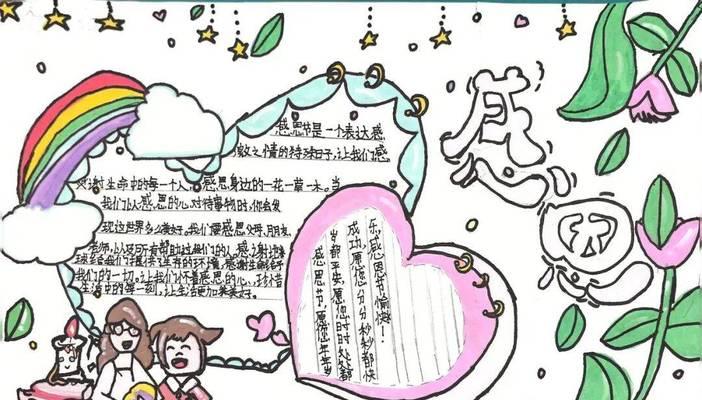 感恩
感恩节是一个表达感
激之情的特殊日子,让我们感
谢生命中的每一个人,感恩身边的一花一草一木。当
我们以感恩的心,对待事物时,你会发
现这世界多么美好。我们要感恩父母、朋友、
老师,以及所有帮助过我们的人,感谢地
球给我们提供了生存的环境,感谢生命给予
我们的一切。让我们怀着感恩的心,珍惜
生活中的每一刻,让生活更加美好。
感恩节,愿您年年岁
岁都平安,愿您时时处都
成功,愿您分分秒秒都快
乐,感恩节愉快!